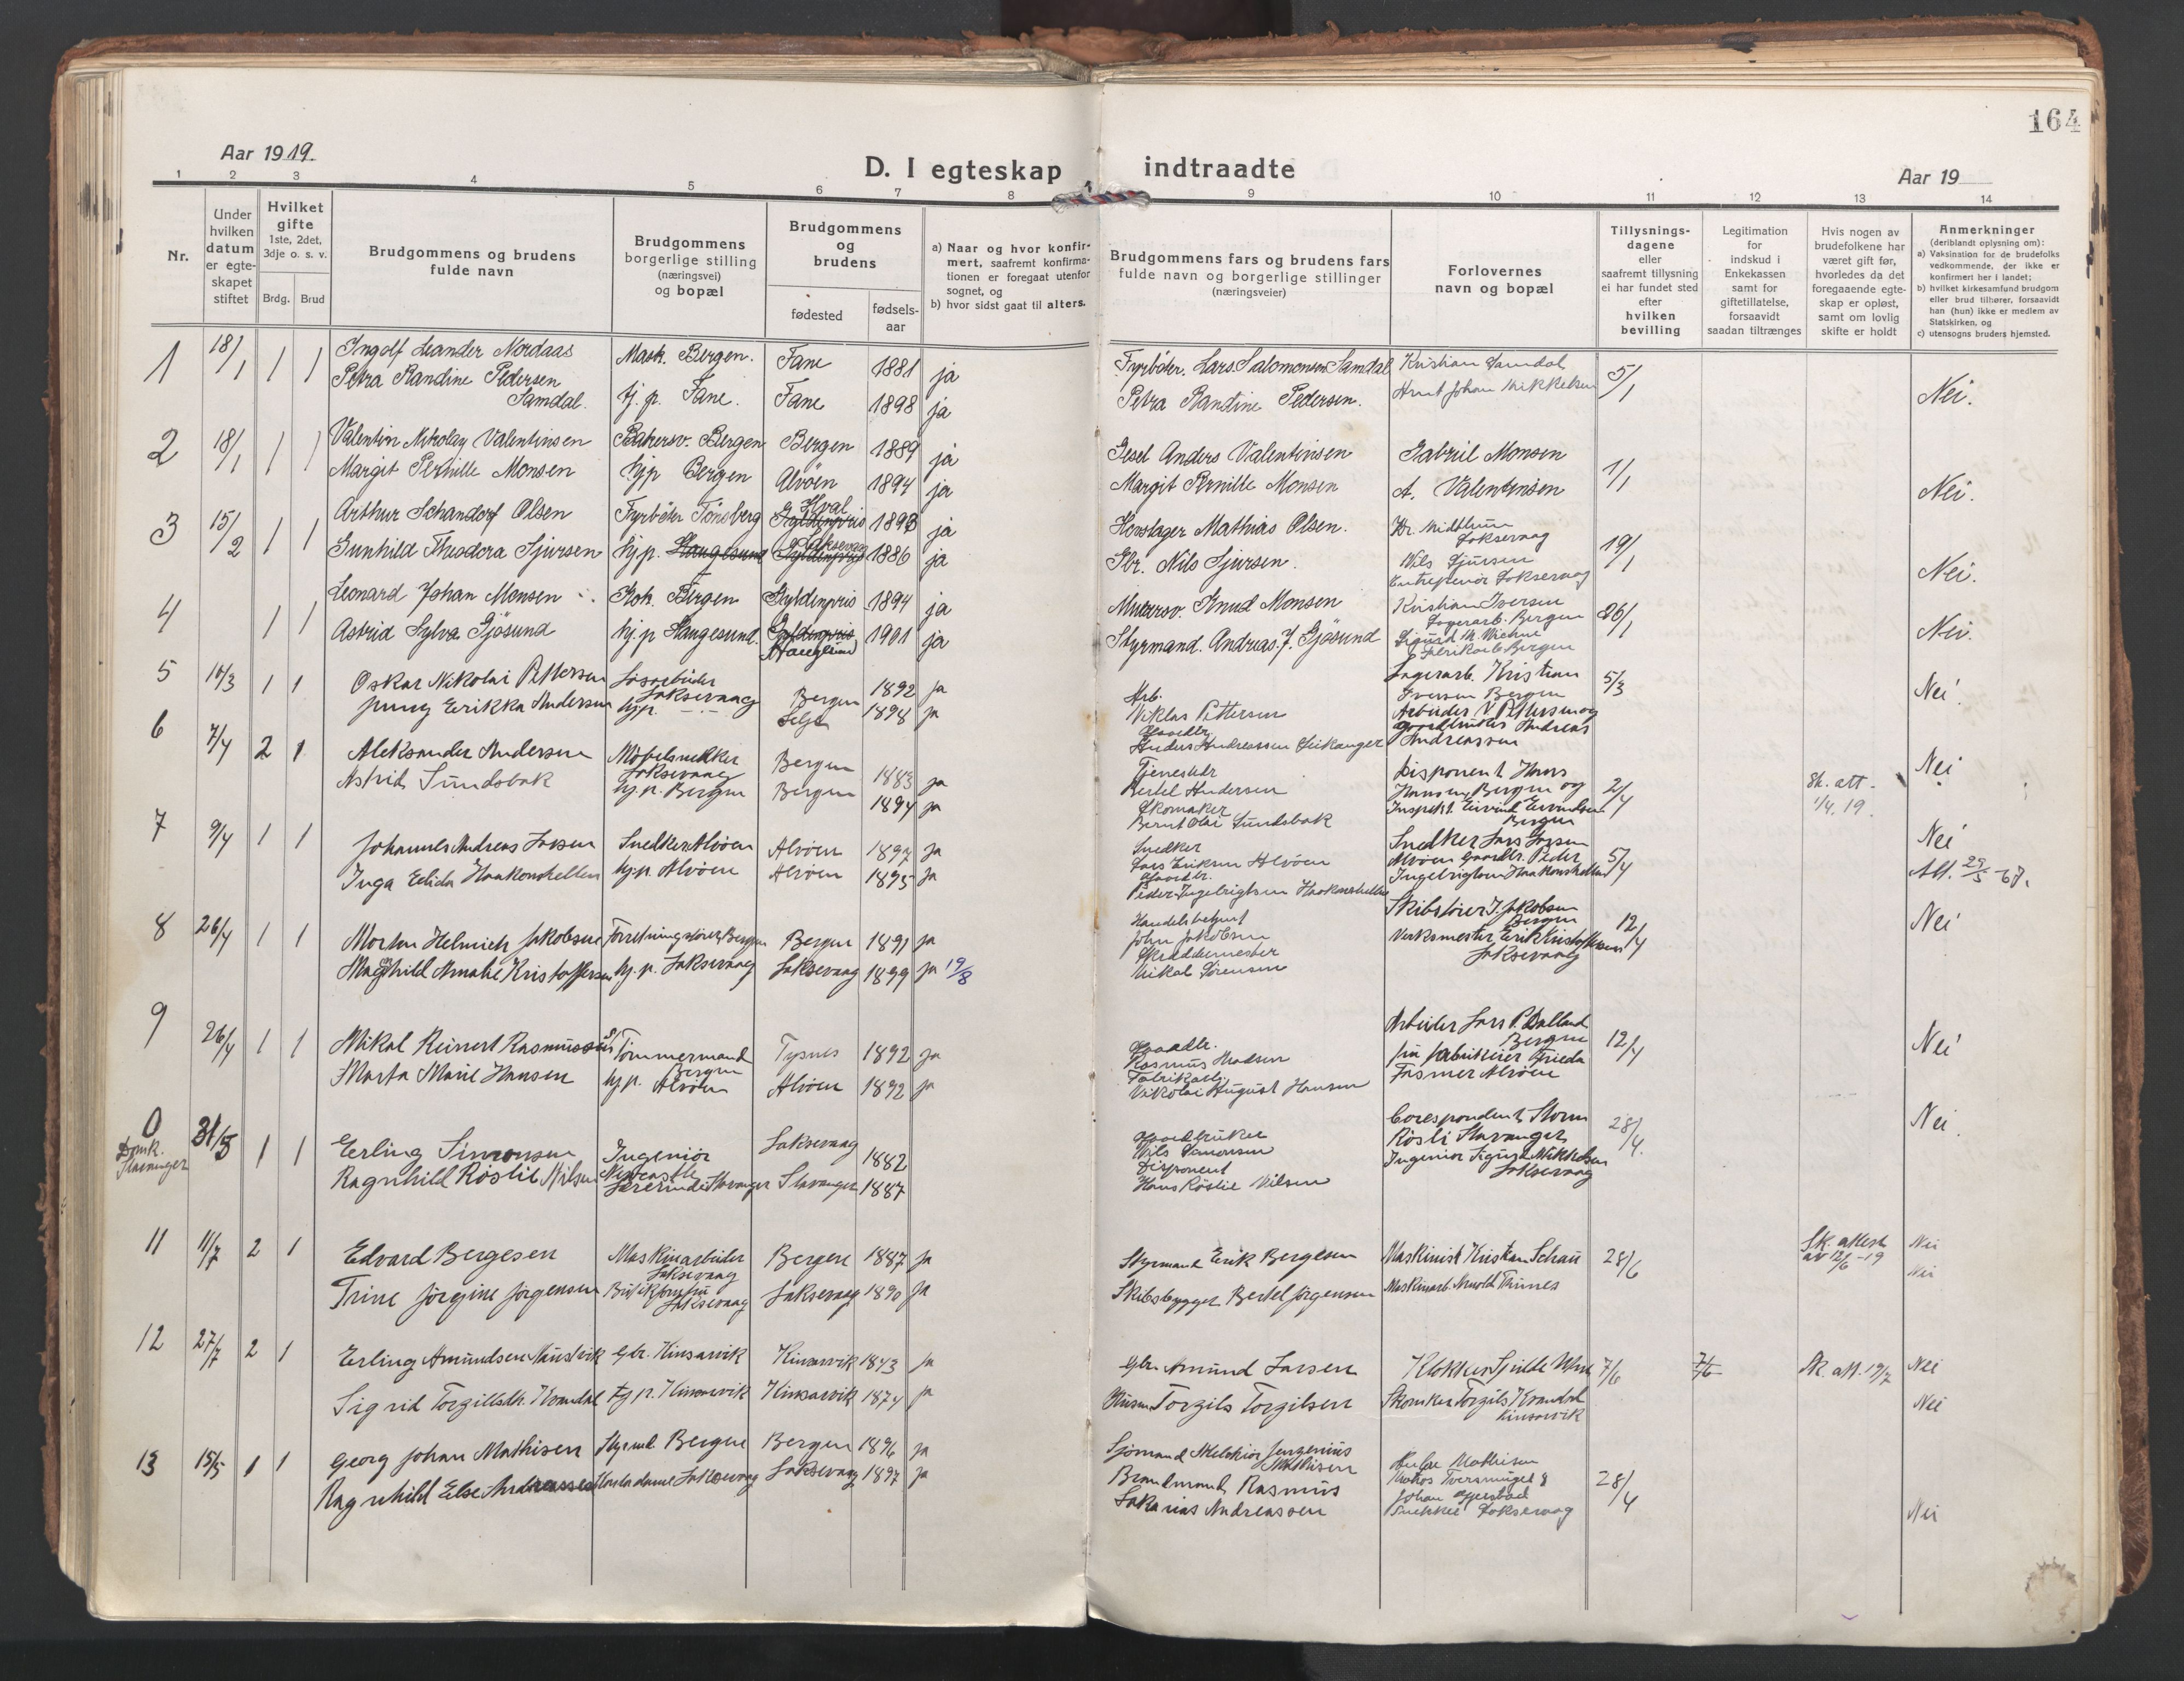 164
Aar 1919.
D. I egteskap indtraadte
Aar 19
1 2 3 4 5 6 7 8 9 10 11 12 13 14
Nr.
Under hvilken datum er egte-skapet stiftet
Hvilket gifte 1ste, 2det, 3dje o. s. v.
Brdg. Brud
Brudgommens og brudens fulde navn
Brudgommens borgerlige stilling (næringsvei) og bopæl
Brudgommens og brudens
fødested
fødsels-aar
a) Naar og hvor konfir-mert, saafremt konfirma-tionen er foregaat utenfor sognet, og
b) hvor sidst gaat til alters.
Brudgommens fars og brudens fars fulde navn og borgerlige stillinger (næringsveier)
Forlovernes navn og bopæl
Tillysnings-dagene eller saafremt tillysning ei har fundet sted efter hvilken bevilling
Legitimation for indskud i Enkekassen samt for giftetillatelse, forsaavidt saadan tiltrænges
Hvis nogen av brudefolkene har været gift før, hvorledes da det foregaaende egte-skap er opløst, samt om lovlig skifte er holdt
Anmerkninger (deriblandt oplysning om):
a) Vaksination for de brudefolks vedkommende, der ikke er konfirmert her i landet;
b) hvilket kirkesamfund brudgom eller brud tilhører, forsaavidt han (hun) ikke er medlem av Statskirken, og
c) utensogns bruders hjemsted.
1 18/1 1 1 Ingolf Leander Nordaas Mask. Bergen. Fane 1881 ja Fyrbøter. Lars Salomonsen Samdal Kristian Samdal 5/1
Petra Randine Pedersen Samdal. hj. p. Fane. Fane 1898 ja Petra Randine Pedersen. Knut Johan Mikkelsen Nei.
2 18/1 1 1 Valentin Nikolay Valentinsen Bakersv. Bergen Bergen 1889 ja Gesel Anders Valentinsen Gabriel Monsen 1/1
Margit Pernille Monsen hjp Bergen Alvöen 1894 ja Margit Pernille Monsen A. Valentinsen Nei.
3 15/2 1 1 Arthur Schandorf Olsen Fyrbøter Tönsberg Gyldenpris Hval 1893 ja Hovslager Mathias Olsen. Kr. Midthun Laksevaag 19/1
Gunhild Theodora Sjursen hj.p. Haugesund Gyldenpris Laksevaag 1886 ja Gbr. Nils Sjursen. Nils Sjursen Entreprenör Laksevaag Nei.
4 1 1 Leonard Johan Monsen Kok. Bergen Gyldenpris 1894 ja Murersv. Knud Monsen Kristian Iversen Lagerarb. Bergen 26/1
Astrid Sylva Gjösund hj.p Haugesund. Gyldenpris Haugesund 1901 ja Styrmand. Andreas. J. Gjösund Sigurd M. Fabrikarb Bergen Nei.
5 14/3 1 1 Oskar Nikolai Pettersen Løsarbeider Laksevaag Bergen 1892 ja Arb. Niklas Pettersen Lagerarb. Kristian Iversen Bergen 5/3 Nei
Jenny Erikka Andersen hj.p. -"- Selje 1898 ja Gaardbr. Anders Andreassen Leikanger Arbeider N. Pettersen og Gaardbruker Andreas Andreassen
6 7/4 2 1 Aleksander Andersen Møbelsnekker Laksevaag Bergen 1883 ja Tjenestkr Bertel Andersen Disponent Hans Hansen Bergen og 2/4 Sk. att. 1/4. 19. Nei
Astrid Sundsbak hj.p. Bergen Bergen 1894 ja Skomaker Bernt Olai Sundsbak Inspekt. Eivind Evensen Bergen
7 9/4 1 1 Johannes Andreas Larsen Snedker Alvöen Alvöen 1897 ja Snedker Lars Eriksen Alvöen Snedker Lars Larsen Alvöen 5/4 Nei
Inga Elida Haakonshellen hj.p. Alvöen Alvöen 1895 ja Gaardbr. Peder Ingebrigtsen Haakonshellen Gaardbr. Peder Ingebrigtsen Haakonshellen Att. 29/5 -67.
8 26/4 1 1 Morten Helmich Jakobsen Forretningsfører, Bergen Bergen 1891 ja Handelsbetjent John Jakobsen Skibsfører J. Jakobsen Bergen 12/4 Nei
Magnhild Amalie Kristoffersen hj.p. Laksevaag Laksevaag 1899 ja 19/8 Skræddermester Mikal Sørensen Verksmester Erik Kristoffersen Laksevaag
9 26/4 1 1 Mikal Reinert Rasmussen Tømmermand Bergen Tysnes 1892 ja Gaardbr. Rasmus Madsen Arbeider Lars P. Dalland Bergen 12/4 Nei
Marta Marie Hansen hj.p. Alvöen Alvöen 1892 ja Fabrikarb. Nikolai August Hansen fru fabrikeier Frieda Fasmer Alvöen
0 Domk. Stavanger 31/5 1 1 Erling Simonsen Ingeniør Newcastle Laksevaag 1882 Gaardbruker Nils Simonsen Corespondent Storm Røsli Stavanger 28/4. Nei
Ragnhild Röslie Nilsen Stavanger Stavanger 1887 Disponent Hans Röslie Nilsen Ingeniør Sigurd Mikkelsen Laksevaag
11 11/7 2 1 Edvard Bergesen Maskinarbeider Laksevaag Bergen 1887 ja Styrmand Erik Bergesen Maskinist Kristian Schau 28/6 Sk. attest av 12/6 -19 Nei
Trine Jørgine Jørgensen Butikjomfru Laksevaag Laksevaag 1890 ja Skibsbygger Bertel Jørgensen Maskinarb. Arnold Thunes Nei
12 27/7 2 1 Erling Amundsen Naustvik Gbr. Kinsarvik Kinsarvik 1843 ja Gbr. Amund Larsen Klokker 7/6 7/6 Sk. att. 19/7 Nei
Sigrid Torgilsdtr. Kvandal hj p. Kinsarvik Kinsarvik 1874 ja Husm. Torgils Torgilsen Skomker Torgils Kvandal Kinsarvik Nei
13 15/5 1 1 Georg Johan Mathisen Styrmd. Bergen Bergen 1896 ja Sjømand Melchior Jurgenius Mathisen Mathisen 28/4
Ragnhild Else Andreassen Laksevaag Laksevaag 1897 ja Brandmand Rasmus Sakarias Andreassen Johan Snekker Laksevaag Nei